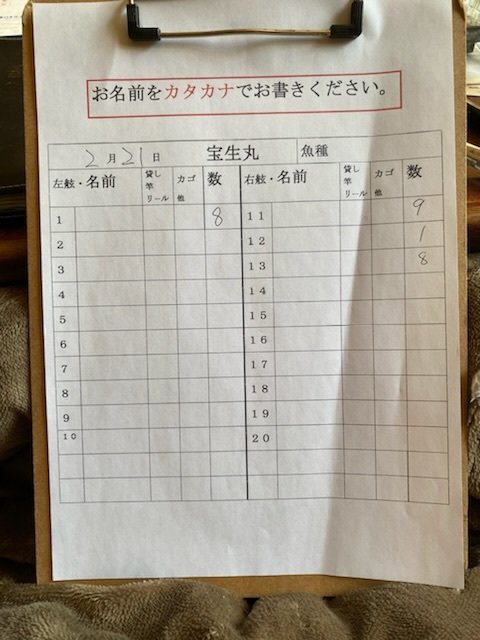 お名前をカタカナでお書きください。
2月21日 宝生丸 魚種
左舷・名前 貸し竿リール カゴ他 数 右舷・名前 貸し竿リール カゴ他 数
1 8 11 9
2 12 1
3 13 8
4 14
5 15
6 16
7 17
8 18
9 19
10 20